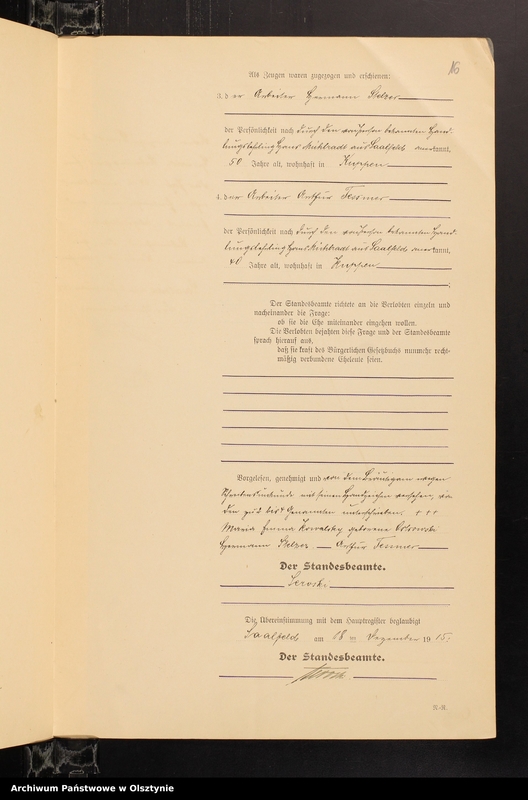 16
Als Zeugen waren zugezogen und erschienen:
3. der Arbeiter Hermann Stelzer
der Persönlichkeit nach durch den
lingslehrling aus Saalfeld anerkannt,
50 Jahre alt, wohnhaft in Kuppen
4. der Arbeiter Arthur Tessmer
der Persönlichkeit nach durch den
lingslehrling aus Saalfeld anerkannt,
40 Jahre alt, wohnhaft in Kuppen
;
Der Standesbeamte richtete an die Verlobten einzeln und
nacheinander die Frage:
ob sie die Ehe miteinander eingehen wollen.
Die Verlobten bejahten diese Frage und der Standesbeamte
sprach hierauf aus,
daß sie kraft des Bürgerlichen Gesetzbuchs nunmehr recht-
mäßig verbundene Eheleute seien.
Vorgelesen, genehmigt und von dem Bräutigam wegen
Schreibensunkunde mit seinem Handzeichen versehen, von
den zu 2 bis 4 Genannten unterschrieben. + + +
Maria Emma Kowalsky geborene
Hermann Stelzer Arthur Tessmer
Der Standesbeamte.
Die Übereinstimmung mit dem Hauptregister beglaubigt
Saalfeld am 18 ten Dezember 1915.
Der Standesbeamte.
N.-R.
Archiwum Państwowe w Olsztynie